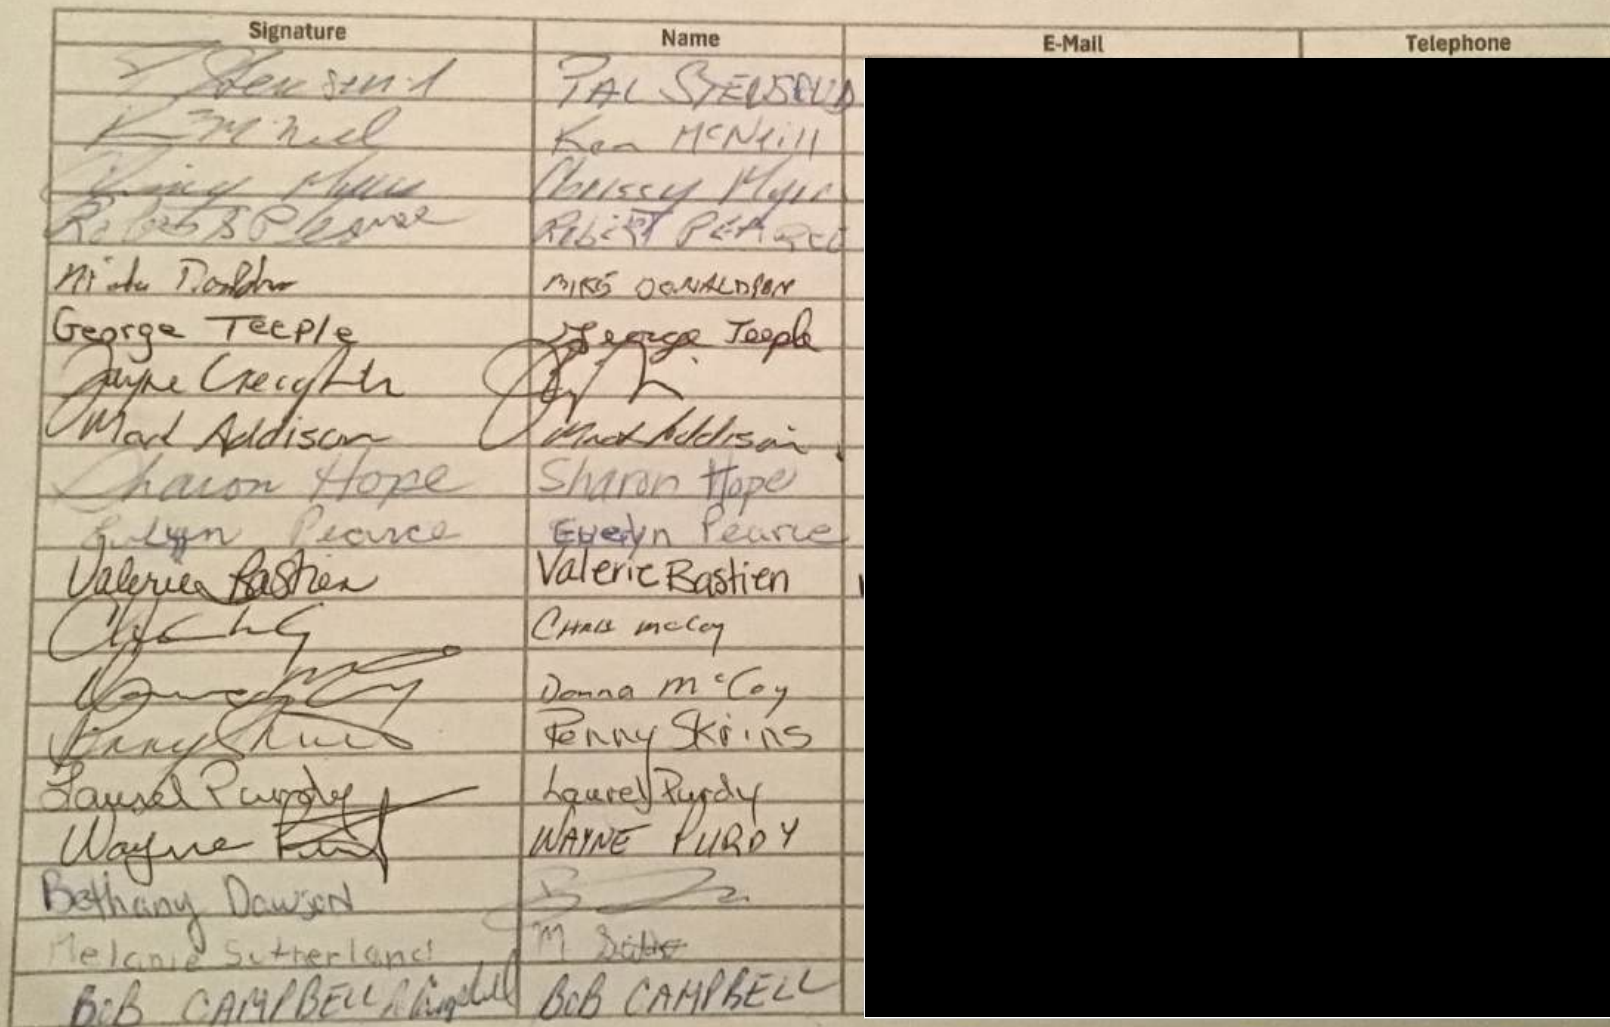 Signature Name E-Mail Telephone
Stensrud PAL STENSRUD
K McNeill Ken McNeill
Chrissy
Robert Pearce Robert PEARCE
MIKE DONALDSON
George Teeple George Teeple
Jayne Creighton
Mark Addison Mark Addison
Sharon Hope Sharon Hope
Evelyn Pearce Evelyn Pearce
Valerie Bastien Valerie Bastien
CHRIS McCoy
Donna McCoy
Penny Penny Skrins
Laurel Purdy Laurel Purdy
Wayne WAYNE PURDY
Bethany Dawson
Melanie Sutherland M
BOB CAMPBELL BOB CAMPBELL